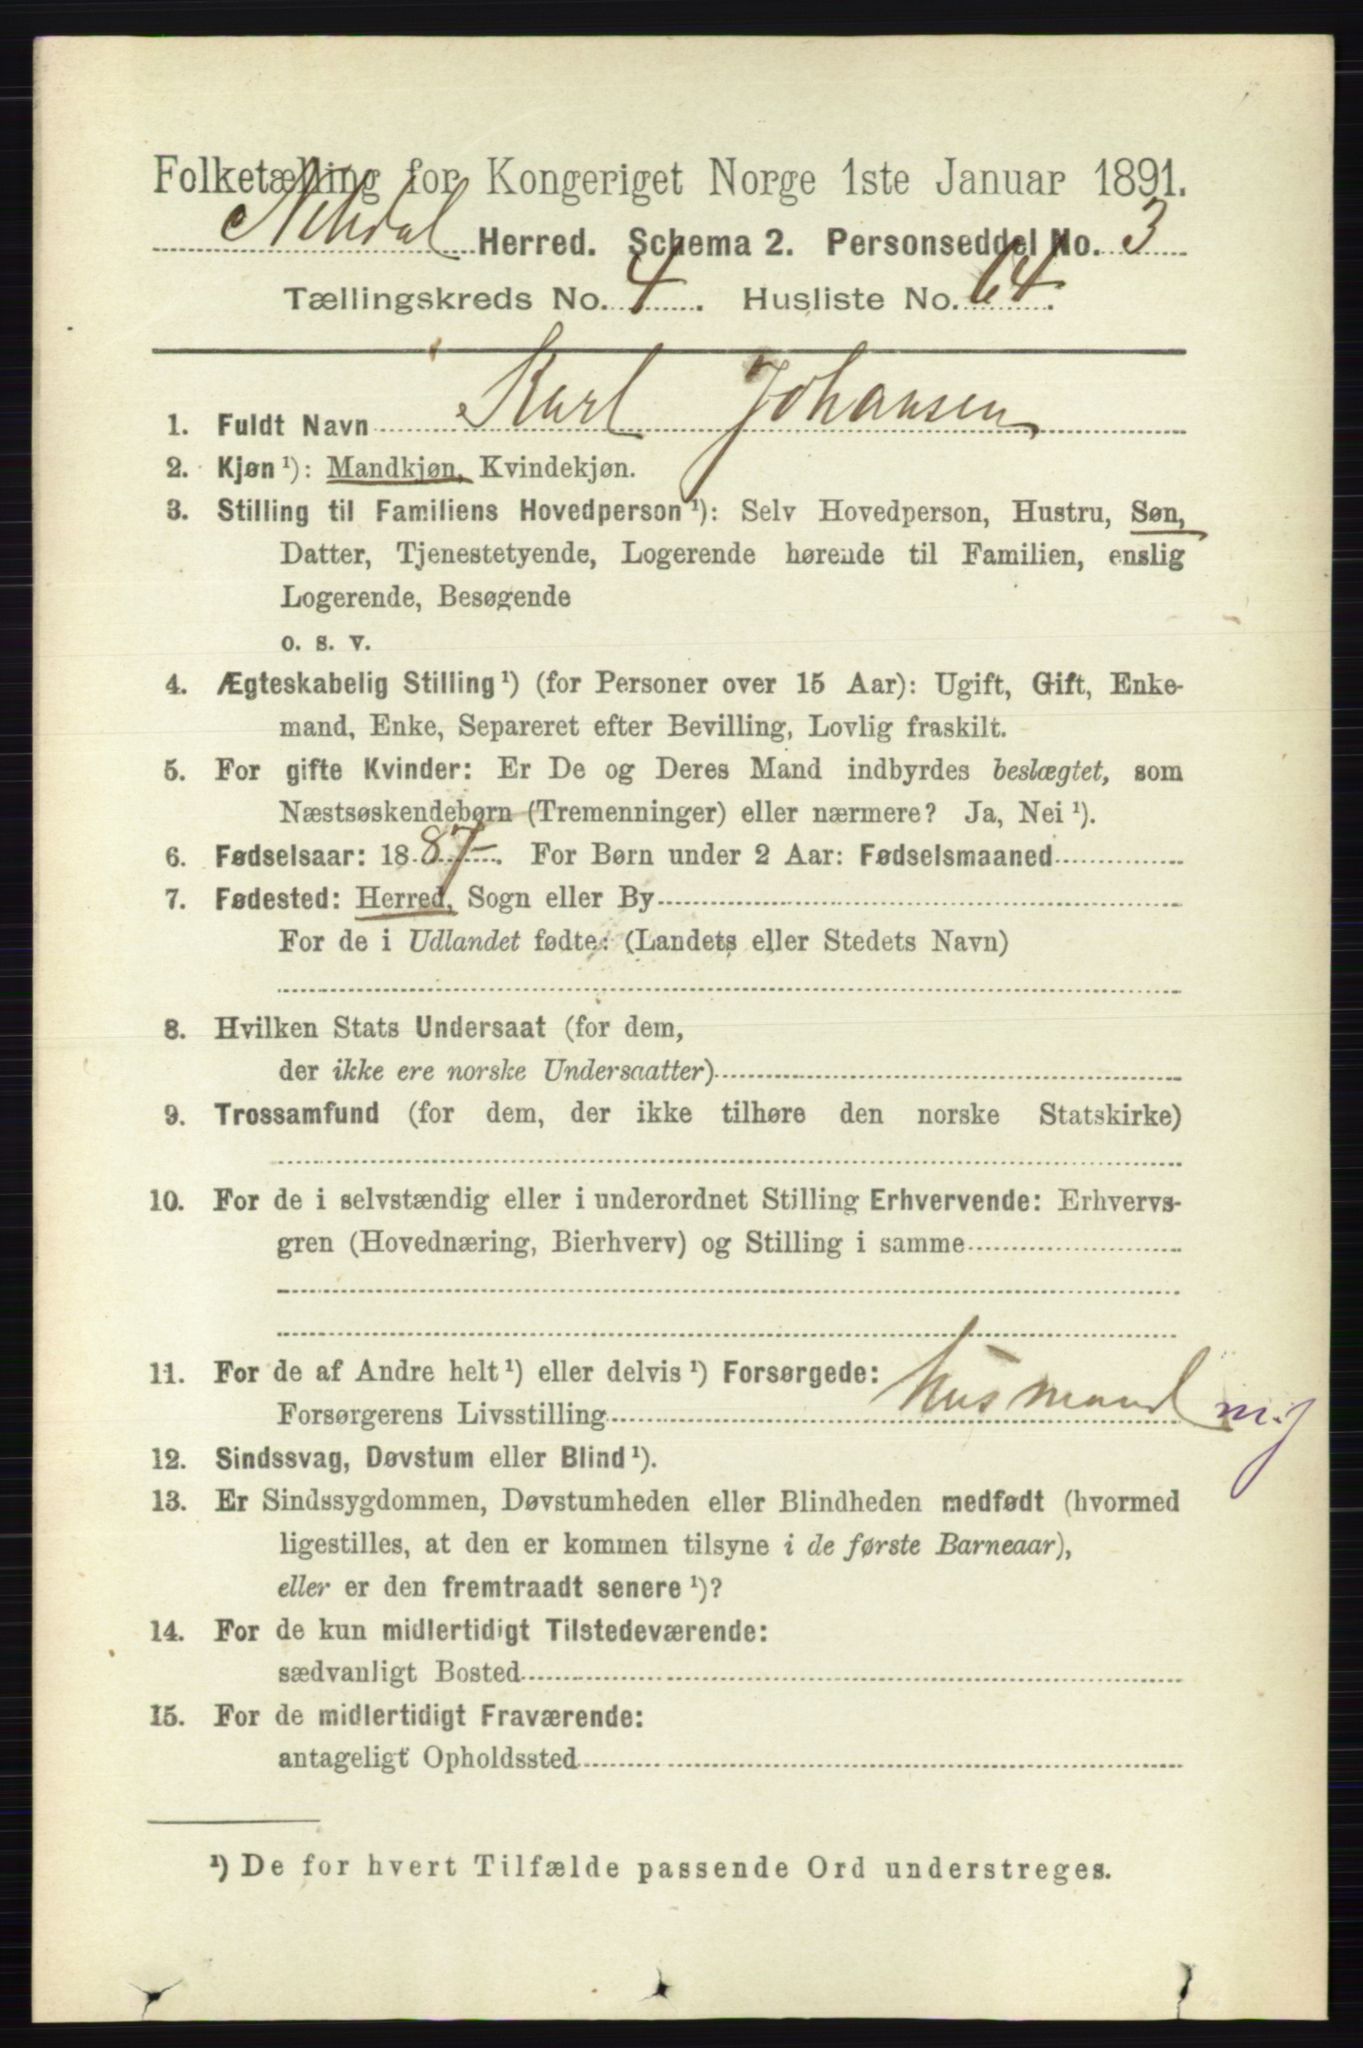 Folketælling for Kongeriget Norge 1ste Januar 1891.
Nitedal Herred. Schema 2. Personseddel No. 3
Tællingskreds No. 4. Husliste No. 64.
1. Fuldt Navn Karl Johansen
2. Kjøn ¹): Mandkjøn, Kvindekjøn.
3. Stilling til Familiens Hovedperson ¹): Selv Hovedperson, Hustru, Søn,
Datter, Tjenestetyende, Logerende hørende til Familien, enslig
Logerende, Besøgende
o. s. v.
4. Ægteskabelig Stilling ¹) (for Personer over 15 Aar): Ugift, Gift, Enke-
mand, Enke, Separeret efter Bevilling, Lovlig fraskilt.
5. For gifte Kvinder: Er De og Deres Mand indbyrdes beslægtet, som
Næstsøskendebørn (Tremenninger) eller nærmere? Ja, Nei ¹).
6. Fødselsaar: 1887. For Børn under 2 Aar: Fødselsmaaned
7. Fødested: Herred, Sogn eller By
For de i Udlandet fødte: (Landets eller Stedets Navn)
8. Hvilken Stats Undersaat (for dem,
der ikke ere norske Undersaatter)
9. Trossamfund (for dem, der ikke tilhøre den norske Statskirke)
10. For de i selvstændig eller i underordnet Stilling Erhvervende: Erhvervs-
gren (Hovednæring, Bierhverv) og Stilling i samme
11. For de af Andre helt ¹) eller delvis ¹) Forsørgede:
Forsørgerens Livsstilling Husmand m.j
12. Sindssvag, Døvstum eller Blind ¹).
13. Er Sindssygdommen, Døvstumheden eller Blindheden medfødt (hvormed
ligestilles, at den er kommen tilsyne i de første Barneaar),
eller er den fremtraadt senere ¹)?
14. For de kun midlertidigt Tilstedeværende:
sædvanligt Bosted
15. For de midlertidigt Fraværende:
antageligt Opholdssted
¹) De for hvert Tilfælde passende Ord understreges.